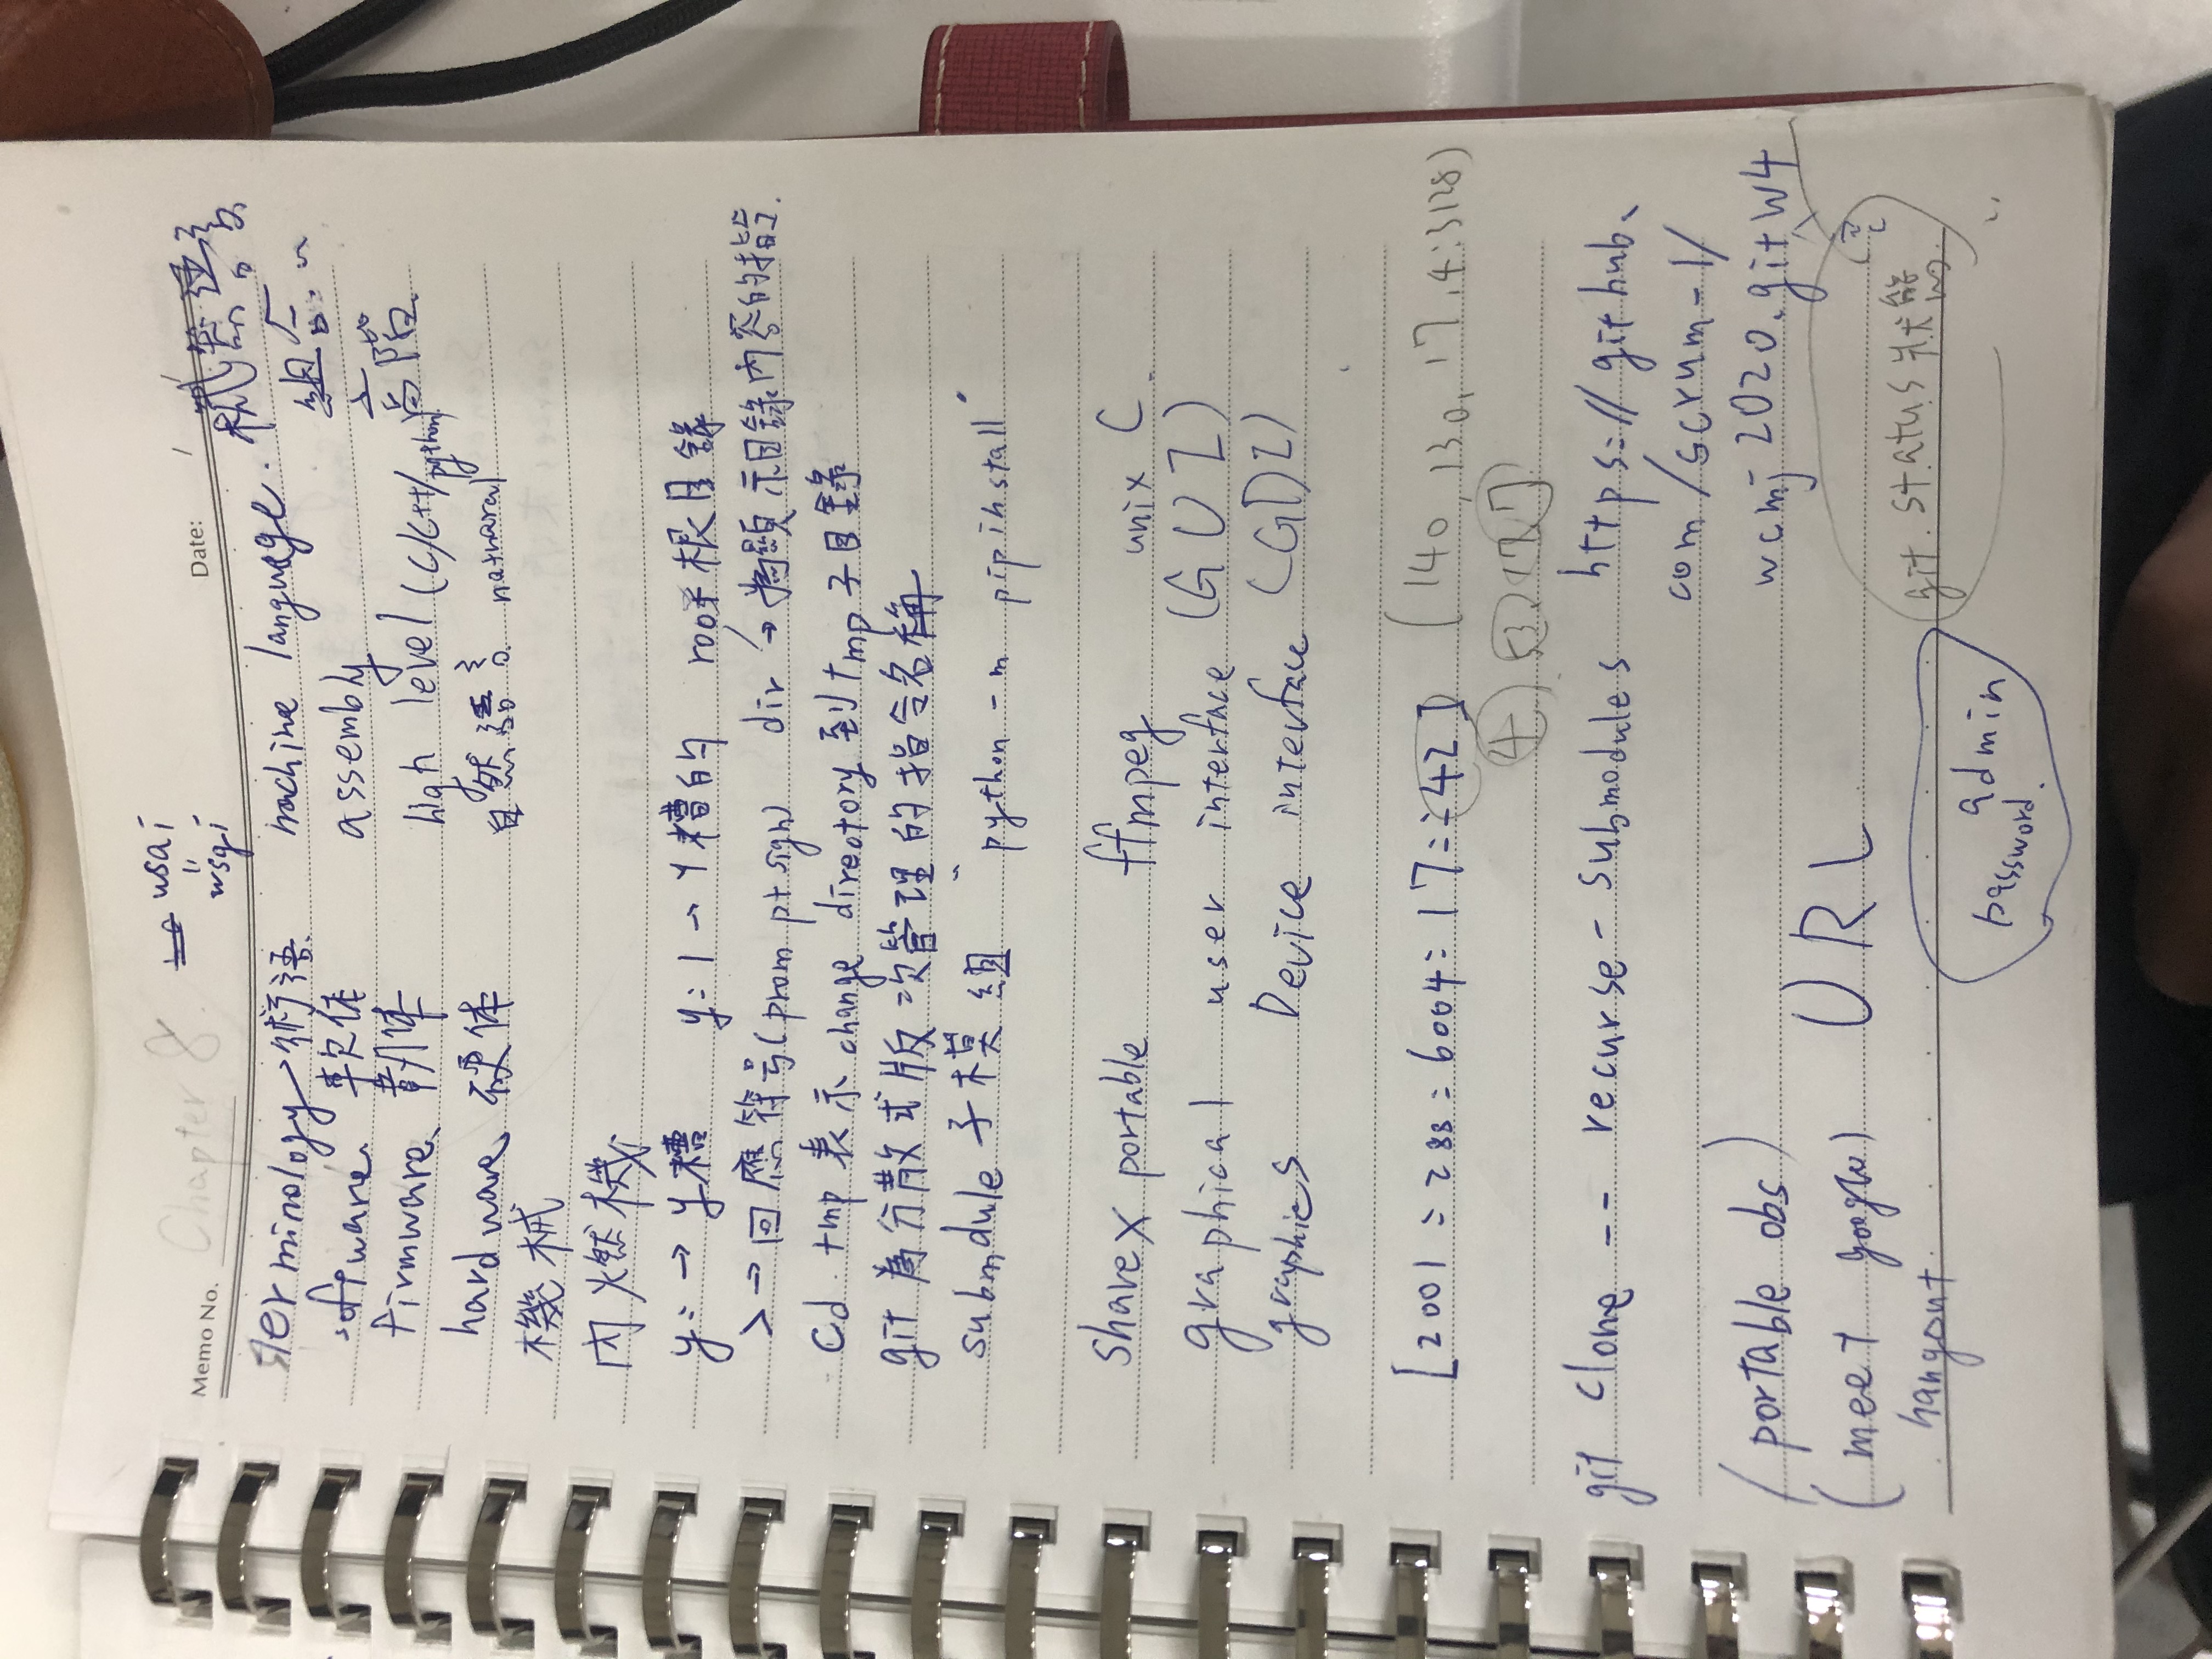 Memo No. Chapter 8. usai Date: / /
"
wsgi
terminology 術語 machine language. 機器語言
software 軟体 assembly 組合 "
firmware 韌体 high level (C/C++/python) 高階
hardware 硬体 自然語言 natuaral
機械
內燃機
y: → y槽 y: \ → Y槽的 root 根目錄
> → 回應符号(prompt sign) dir → 為顯示目錄內容的指令.
cd tmp 表示 change directory 到 tmp 子目錄
git 為分散式版次管理的指令名稱
submdule 子模組 "python -m pip install"
sharex portable ffmpeg unix C.
graphical user interface (GUI)
graphics Device interface (GDI)
[2001:288:6004:17::42] (140.130.17.4:3128)
4 53 17 7
git clone -- recurse-submodules https://github.
com/scrum-1/
wcmj2020.git W4
(portable obs)
(meet google) URL
hangout git status 狀態
admin
password.